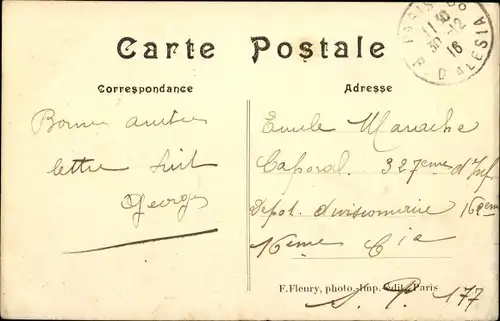 Carte Postale
Correspondance
Adresse
PARIS
11 30
30 -12
16
R. D'ALESIA
Bonne
lettre suit
Georges
Emile
Caporal 327eme d'Inf
Depot divisionnaire
16eme Cie
F. Fleury, photo.-Imp. édit. Paris
S. P. 177